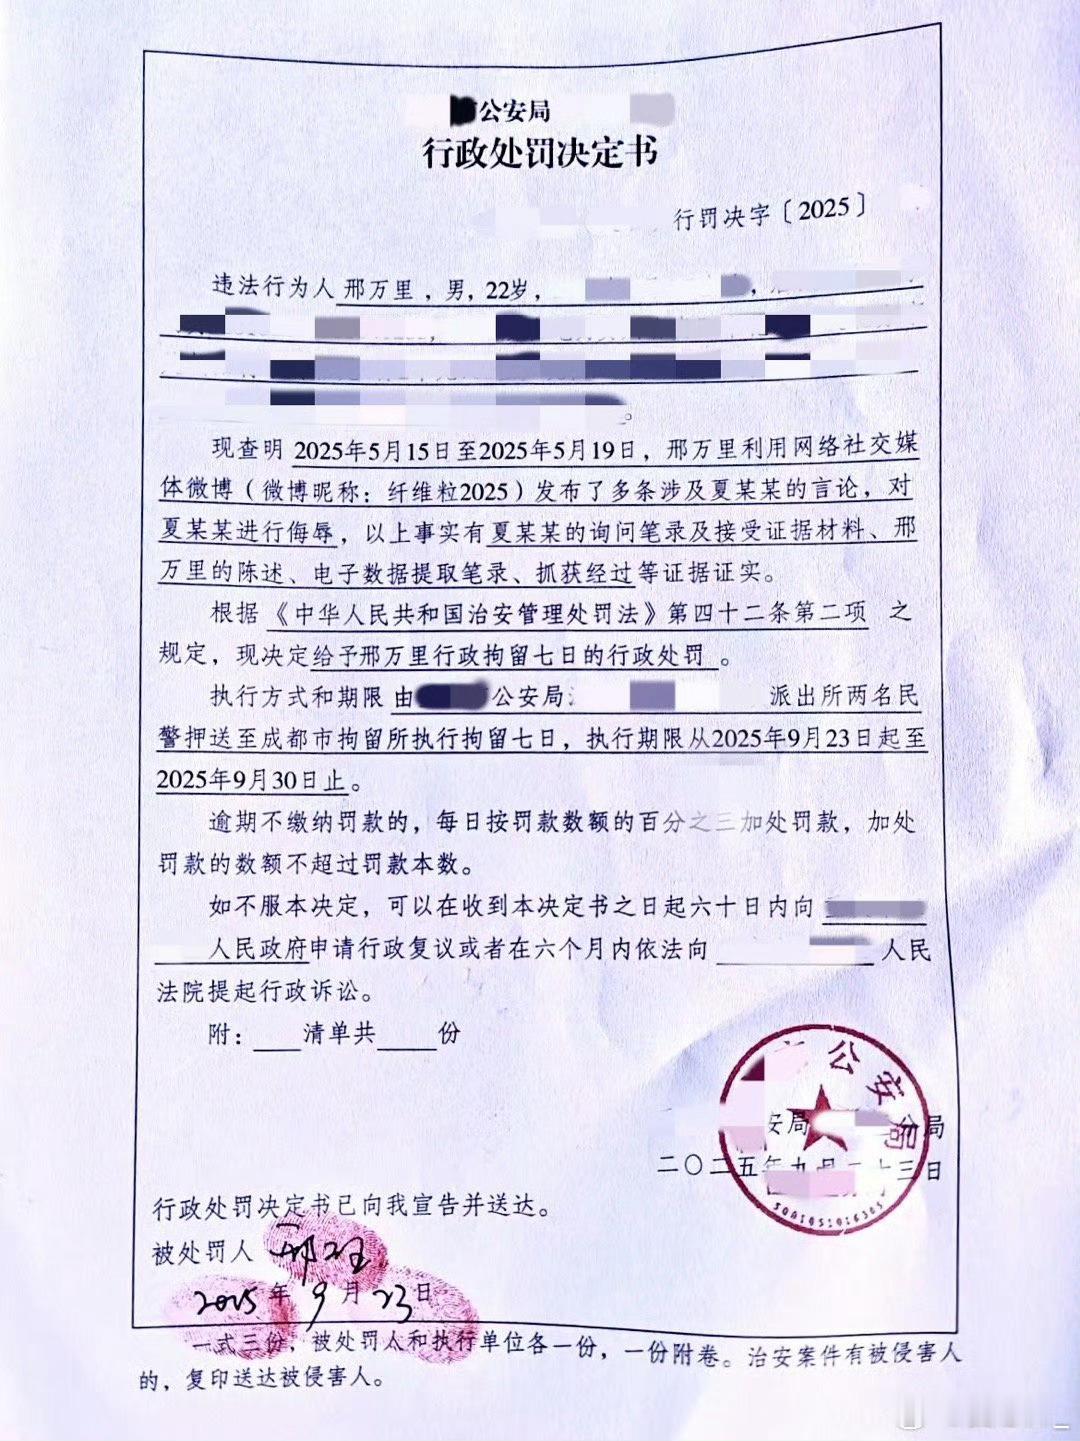 公安局
行政处罚决定书
行罚决字〔2025〕
违法行为人 邢万里，男，22岁，
现查明 2025年5月15日至2025年5月19日，邢万里利用网络社交媒
体微博（微博昵称：纤维粒2025）发布了多条涉及夏某某的言论，对
夏某某进行侮辱，以上事实有夏某某的询问笔录及接受证据材料、邢
万里的陈述、电子数据提取笔录、抓获经过等证据证实。
根据《中华人民共和国治安管理处罚法》第四十二条第二项 之
规定，现决定给予邢万里行政拘留七日的行政处罚 。
执行方式和期限 由 公安局 派出所两名民
警押送至成都市拘留所执行拘留七日，执行期限从2025年9月23日起至
2025年9月30日止。
逾期不缴纳罚款的，每日按罚款数额的百分之三加处罚款，加处
罚款的数额不超过罚款本数。
如不服本决定，可以在收到本决定书之日起六十日内向
人民政府申请行政复议或者在六个月内依法向 人民
法院提起行政诉讼。
附： 清单共 份
公安局
安局 分局
二〇二五年九月二十三日
行政处罚决定书已向我宣告并送达。
被处罚人 邢
2025年9月23日
一式三份，被处罚人和执行单位各一份，一份附卷。治安案件有被侵害人
的，复印送达被侵害人。